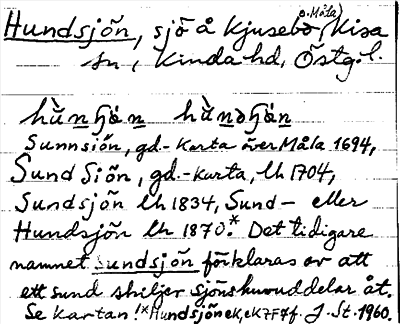 o. Måla)
Hundsjön, sjö å Kjusebo, Kisa
sn, Kinda hd, Östg. l.
Sunnsiön, gd.-karta över Måla 1694,
Sund Siön, gd.-karta, lh 1704,
Sundsjön lh 1834, Sund- eller
Hundsjön lh 1870.* Det tidigare
namnet Sundsjön förklaras av att
ett sund skiljer sjöns huvuddelar åt.
Se kartan! *Hundsjön ek, ek 7F7f. J. St. 1960.